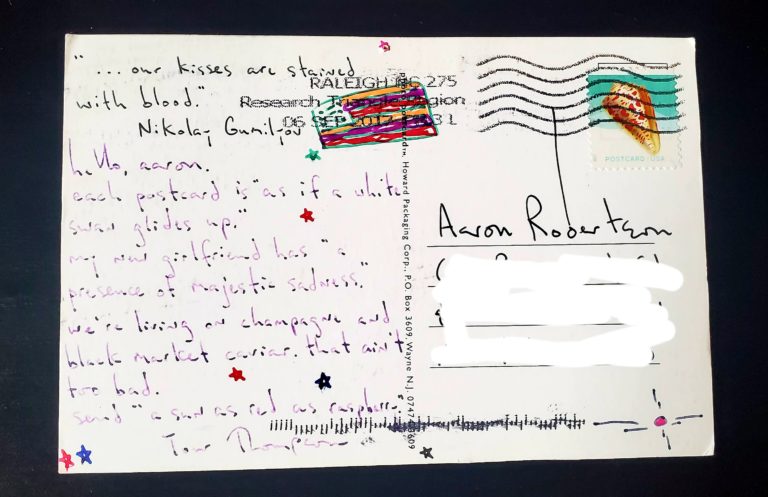 "... our kisses are stained
with blood."
Nikolay Gumilyov
hello, aaron.
each postcard is "as if a white
swan glides up."
my new girlfriend has "a
presence of majestic sadness."
we're living on champagne and
black market caviar. that ain't
too bad.
send "a sun as red as raspberry."
Tom Thompson
RALEIGH NC 275
Research Triangle Region
06 SEP 2017 PM 3 L
Howard Packaging Corp., P.O. Box 3609, Wayne N.J.
POSTCARD USA
Aaron Robertson